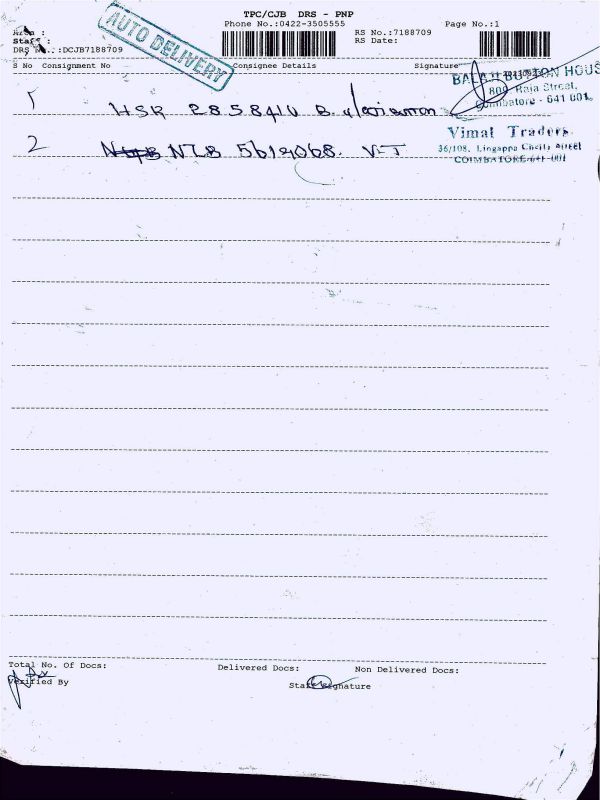 TPC/CJB DRS - PNP
Phone No.:0422-3505555
Page No.:1
AUTO DELIVERY
Area :
Staff :
DRS No.:DCJB7188709
RS No.:7188709
RS Date:
S No Consignment No Consignee Details Signature
BALAJI BUTTON HOUSE
809 Raja Street,
Coimbatore - 641 001.
1 HSR 2858410 B.
2 NZB 5619068. V-T
Vimal Traders
36/108, Lingappa Chetty Street
COIMBATORE-641-001
Total No. Of Docs: Delivered Docs: Non Delivered Docs:
Verified By Staff Signature